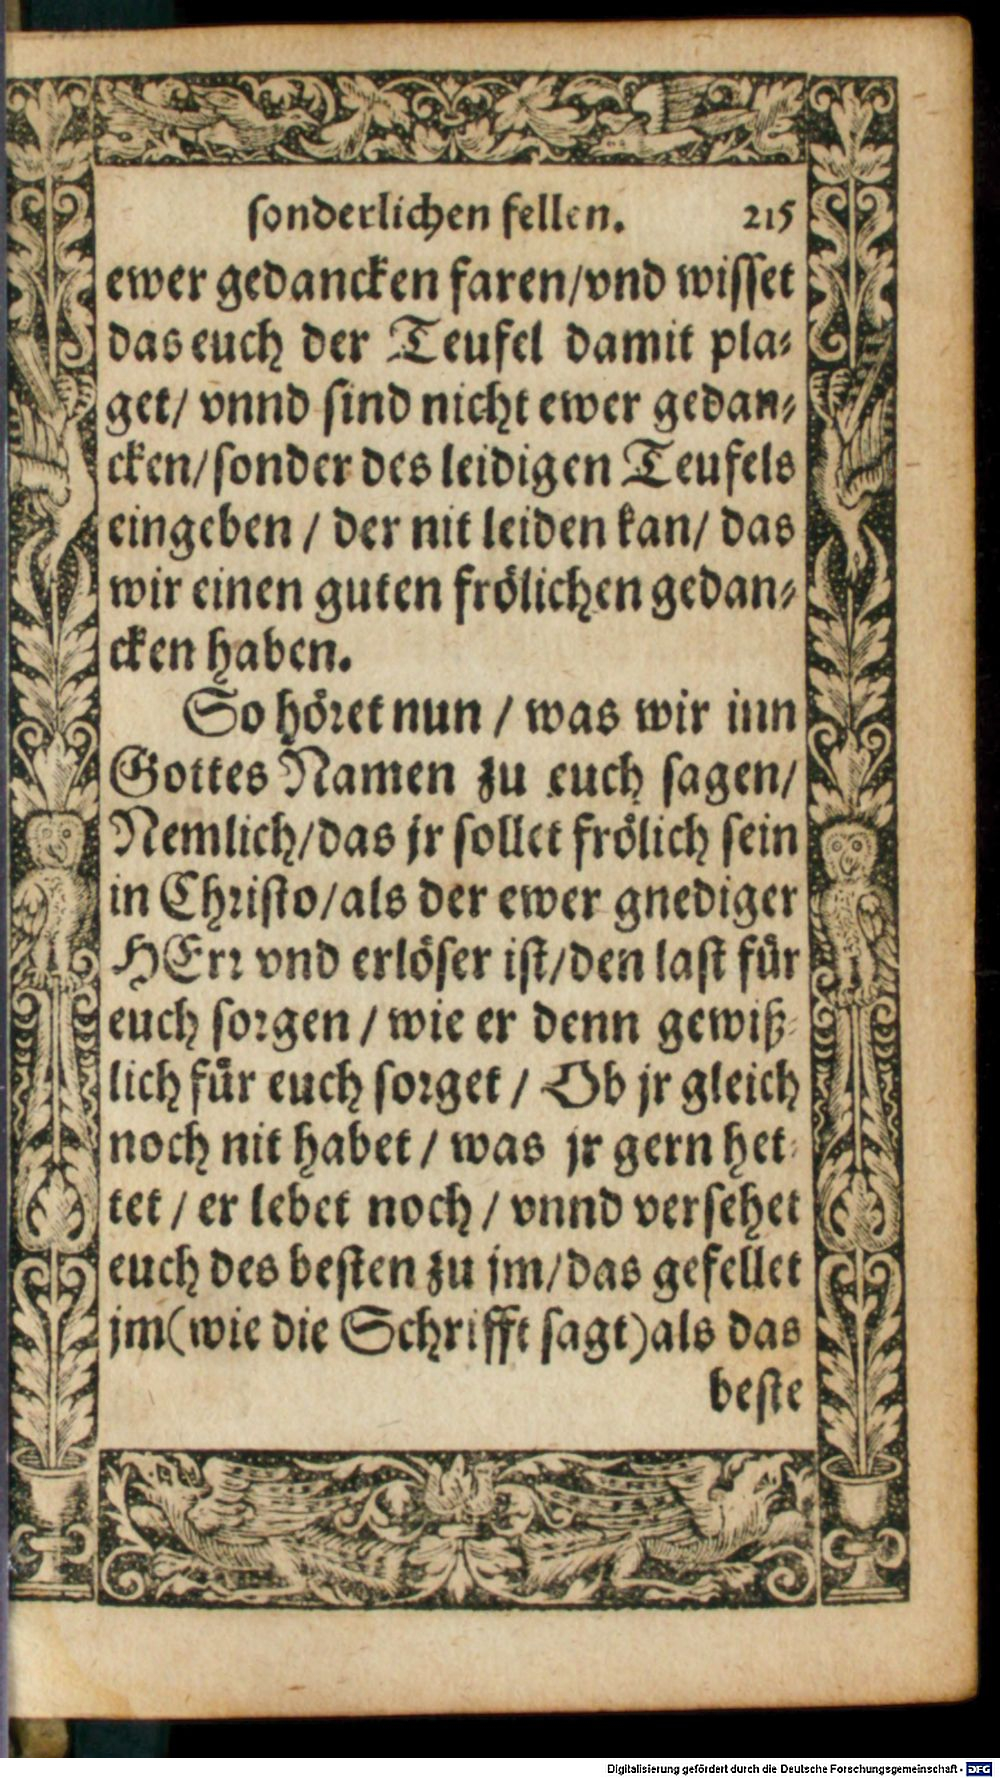 sonderlichen fellen. 215
ewer gedancken faren/vnd wisset
das euch der Teufel damit pla-
get/ vnnd sind nicht ewer gedan-
cken/sonder des leidigen Teufels
eingeben / der nit leiden kan/ das
wir einen guten frölichen gedan-
cken haben.
So höret nun / was wir inn
Gottes Namen zu euch sagen/
Nemlich/das jr sollet frölich sein
in Christo/als der ewer gnediger
HErr vnd erlöser ist/den last für
euch sorgen / wie er denn gewiß-
lich für euch sorget / Ob jr gleich
noch nit habet / was jr gern het-
tet / er lebet noch / vnnd versehet
euch des besten zu jm/das gefellet
jm(wie die Schrifft sagt)als das
beste
Digitalisierung gefördert durch die Deutsche Forschungsgemeinschaft - DFG